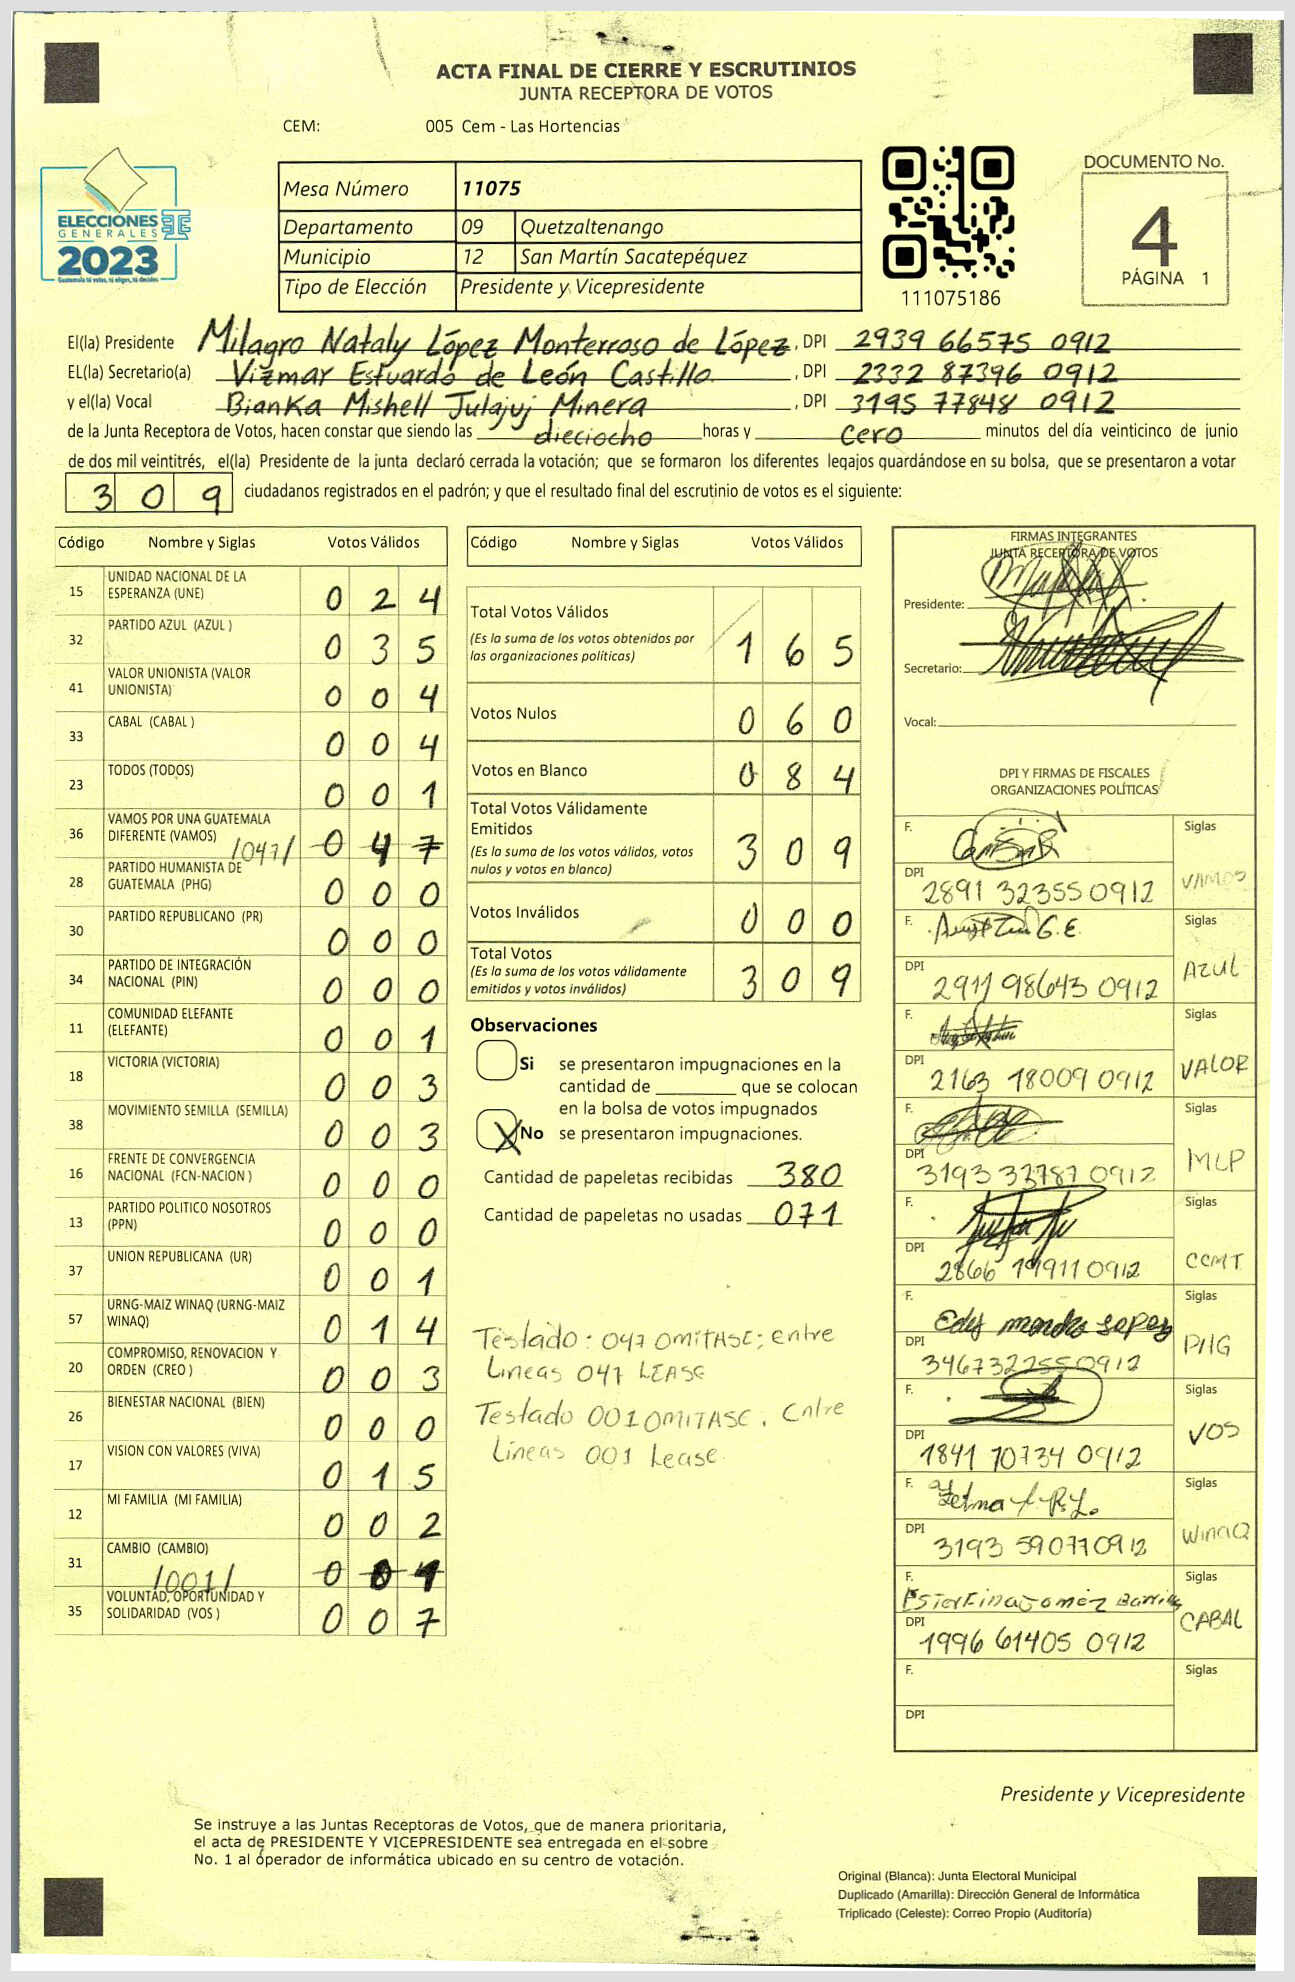 ACTA FINAL DE CIERRE Y ESCRUTINIOS
JUNTA RECEPTORA DE VOTOS
CEM: 005 Cem - Las Hortencias
ELECCIONES
GENERALES
2023
Guatemala tú votas, tú eliges, tú decides
Mesa Número 11075
Departamento 09 Quetzaltenango
Municipio 12 San Martín Sacatepéquez
Tipo de Elección Presidente y Vicepresidente
111075186
DOCUMENTO No.
4
PÁGINA 1
El(la) Presidente Milagro Nataly López Monterroso de López, DPI 2939 66575 0912
EL(la) Secretario(a) Vizmar Estuardo de León Castillo, DPI 2332 87396 0912
y el(la) Vocal Bianka Mishell Julajuj Minera, DPI 3195 77848 0912
de la Junta Receptora de Votos, hacen constar que siendo las dieciocho horas y cero minutos del día veinticinco de junio
de dos mil veintitrés, el(la) Presidente de la junta declaró cerrada la votación; que se formaron los diferentes legajos guardándose en su bolsa, que se presentaron a votar
309 ciudadanos registrados en el padrón; y que el resultado final del escrutinio de votos es el siguiente:
Código Nombre y Siglas Votos Válidos
15 UNIDAD NACIONAL DE LA ESPERANZA (UNE) 024
32 PARTIDO AZUL (AZUL ) 035
41 VALOR UNIONISTA (VALOR UNIONISTA) 004
33 CABAL (CABAL ) 004
23 TODOS (TODOS) 001
36 VAMOS POR UNA GUATEMALA DIFERENTE (VAMOS) /047/ 047
28 PARTIDO HUMANISTA DE GUATEMALA (PHG) 000
30 PARTIDO REPUBLICANO (PR) 000
34 PARTIDO DE INTEGRACIÓN NACIONAL (PIN) 000
11 COMUNIDAD ELEFANTE (ELEFANTE) 001
18 VICTORIA (VICTORIA) 003
38 MOVIMIENTO SEMILLA (SEMILLA) 003
16 FRENTE DE CONVERGENCIA NACIONAL (FCN-NACION ) 000
13 PARTIDO POLITICO NOSOTROS (PPN) 000
37 UNION REPUBLICANA (UR) 001
57 URNG-MAIZ WINAQ (URNG-MAIZ WINAQ) 014
20 COMPROMISO, RENOVACION Y ORDEN (CREO ) 003
26 BIENESTAR NACIONAL (BIEN) 000
17 VISION CON VALORES (VIVA) 015
12 MI FAMILIA (MI FAMILIA) 002
31 CAMBIO (CAMBIO) /001/ 001
35 VOLUNTAD, OPORTUNIDAD Y SOLIDARIDAD (VOS ) 007
Código Nombre y Siglas Votos Válidos
Total Votos Válidos 165
(Es la suma de los votos obtenidos por
las organizaciones políticas)
Votos Nulos 060
Votos en Blanco 084
Total Votos Válidamente
Emitidos 309
(Es la suma de los votos válidos, votos
nulos y votos en blanco)
Votos Inválidos 000
Total Votos 309
(Es la suma de los votos válidamente
emitidos y votos inválidos)
Observaciones
Si se presentaron impugnaciones en la
cantidad de ________ que se colocan
en la bolsa de votos impugnados
X No se presentaron impugnaciones.
Cantidad de papeletas recibidas 380
Cantidad de papeletas no usadas 071
Testado: 047 OMITASE; entre
Lineas 047 LEASE
Testado 001 OMITASE. Entre
Lineas 001 Lease
FIRMAS INTEGRANTES
JUNTA RECEPTORA DE VOTOS
Presidente:
Secretario:
Vocal:
DPI Y FIRMAS DE FISCALES
ORGANIZACIONES POLÍTICAS
F. Siglas
DPI 2891 32355 0912 VAMOS
F. Siglas
DPI 2911 98643 0912 AZUL
F. Siglas
DPI 2163 18009 0912 VALOR
F. Siglas
DPI 3193 33787 0912 MLP
F. Siglas
DPI 2866 19911 0912 CCMT
F. Edy mendez Lopez Siglas
DPI 3467322550912 PHG
F. Siglas
DPI 1841 70734 0912 VOS
F. Siglas
DPI 3193 59077 0912 WINAQ
F. Siglas
DPI 1996 61405 0912 CABAL
F. Siglas
DPI
Presidente y Vicepresidente
Se instruye a las Juntas Receptoras de Votos, que de manera prioritaria,
el acta de PRESIDENTE Y VICEPRESIDENTE sea entregada en el sobre
No. 1 al operador de informática ubicado en su centro de votación.
Original (Blanca): Junta Electoral Municipal
Duplicado (Amarilla): Dirección General de Informática
Triplicado (Celeste): Correo Propio (Auditoría)